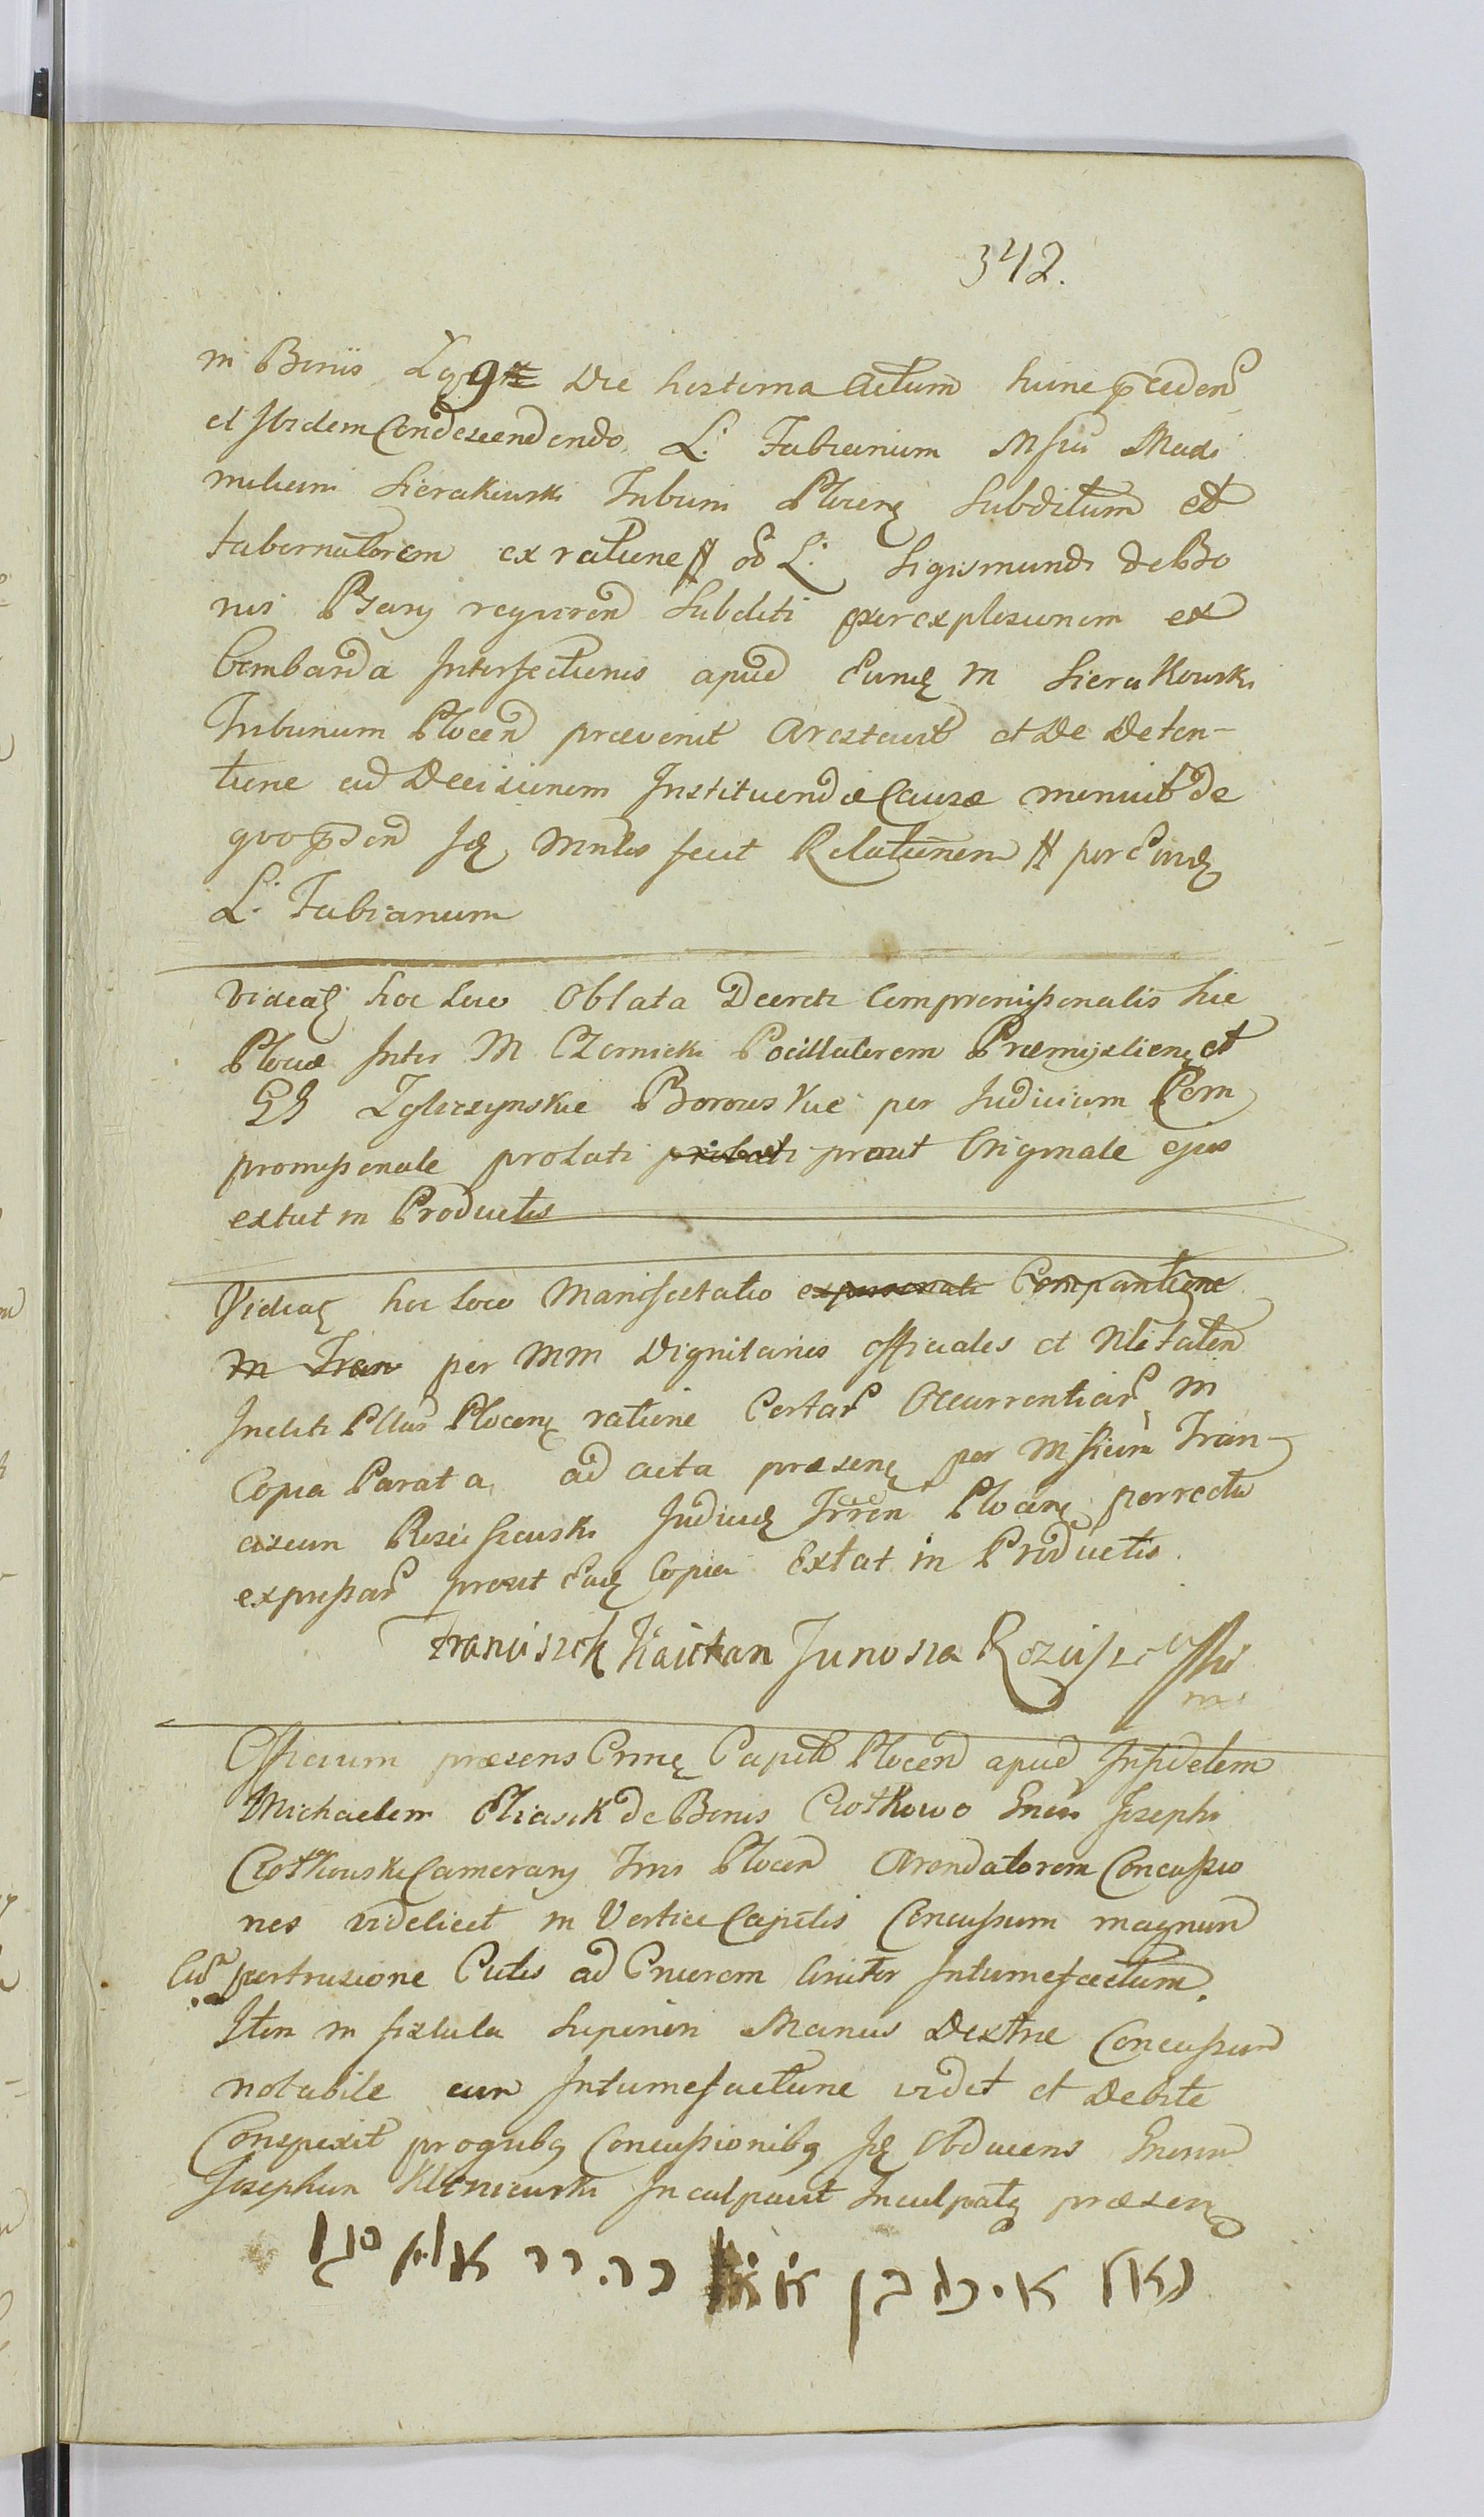 342.
in Boniis Die hesterna Actum hinc præceden
et Ibidem Condescendendo L. Fabianum
miliani Sierakowski Tribuni Plocens Subditum et
tabernatorem ex ratione ob L. Sigismundi de Bo
nis Psary Subditi per explosionem ex
bombarda Interfectionis apud Eund M Sierakowski
Tribunum Plocen prævenit Arestavit et De Deten-
tione ad Decisionem Instituendæ Causæ monuit de
quo Id Mnlis fecit Relationem per Eund
L. Fabianum
Videat hoc loco Oblata Decreti Compromissorialis hic
Plociæ Inter M Czernicki Pocillatorem Præmysliens et
GG Zglczynskie Borowskie per Judicium Com
promissoriale prolati prout Originale ejus
extat in Productis
Videat hoc loco Manifestatio Comparitione
in Fran per MM Dignitarios Officiales et Nlitatem
Incliti Pltus Plocens ratione Certar Occurrentiar in
Copia Parata ad acta præsens per Msicum Fran-
ciscum Rosciszewski Judicem Trren Plocens porrecta
expressar prout Ead Copia Extat in Productis.
Franciszek Kaietan Junosza Rosciszewski
mp
Officium præsens Crme Capitle Plocen apud Infidelem
Michaelem Eliasik de Bonis Ciotkowo Gnsi Josephi
Ciotkowski Camerarij Trris Plocen Arendatorem Concussio
nes videlicet in Vertice Capitis Concussum magnum
Cum pertrusione Cutis ad Cruorem Intumefactum.
Item in fistula Superiori Manus Dextræ Concussum
notabile cum Intumefactione vidit et Debite
Conspexit pro quibq Concussionibq Id Obducens Gnrsum
Josephum Inculpavit Inculpatq præsens